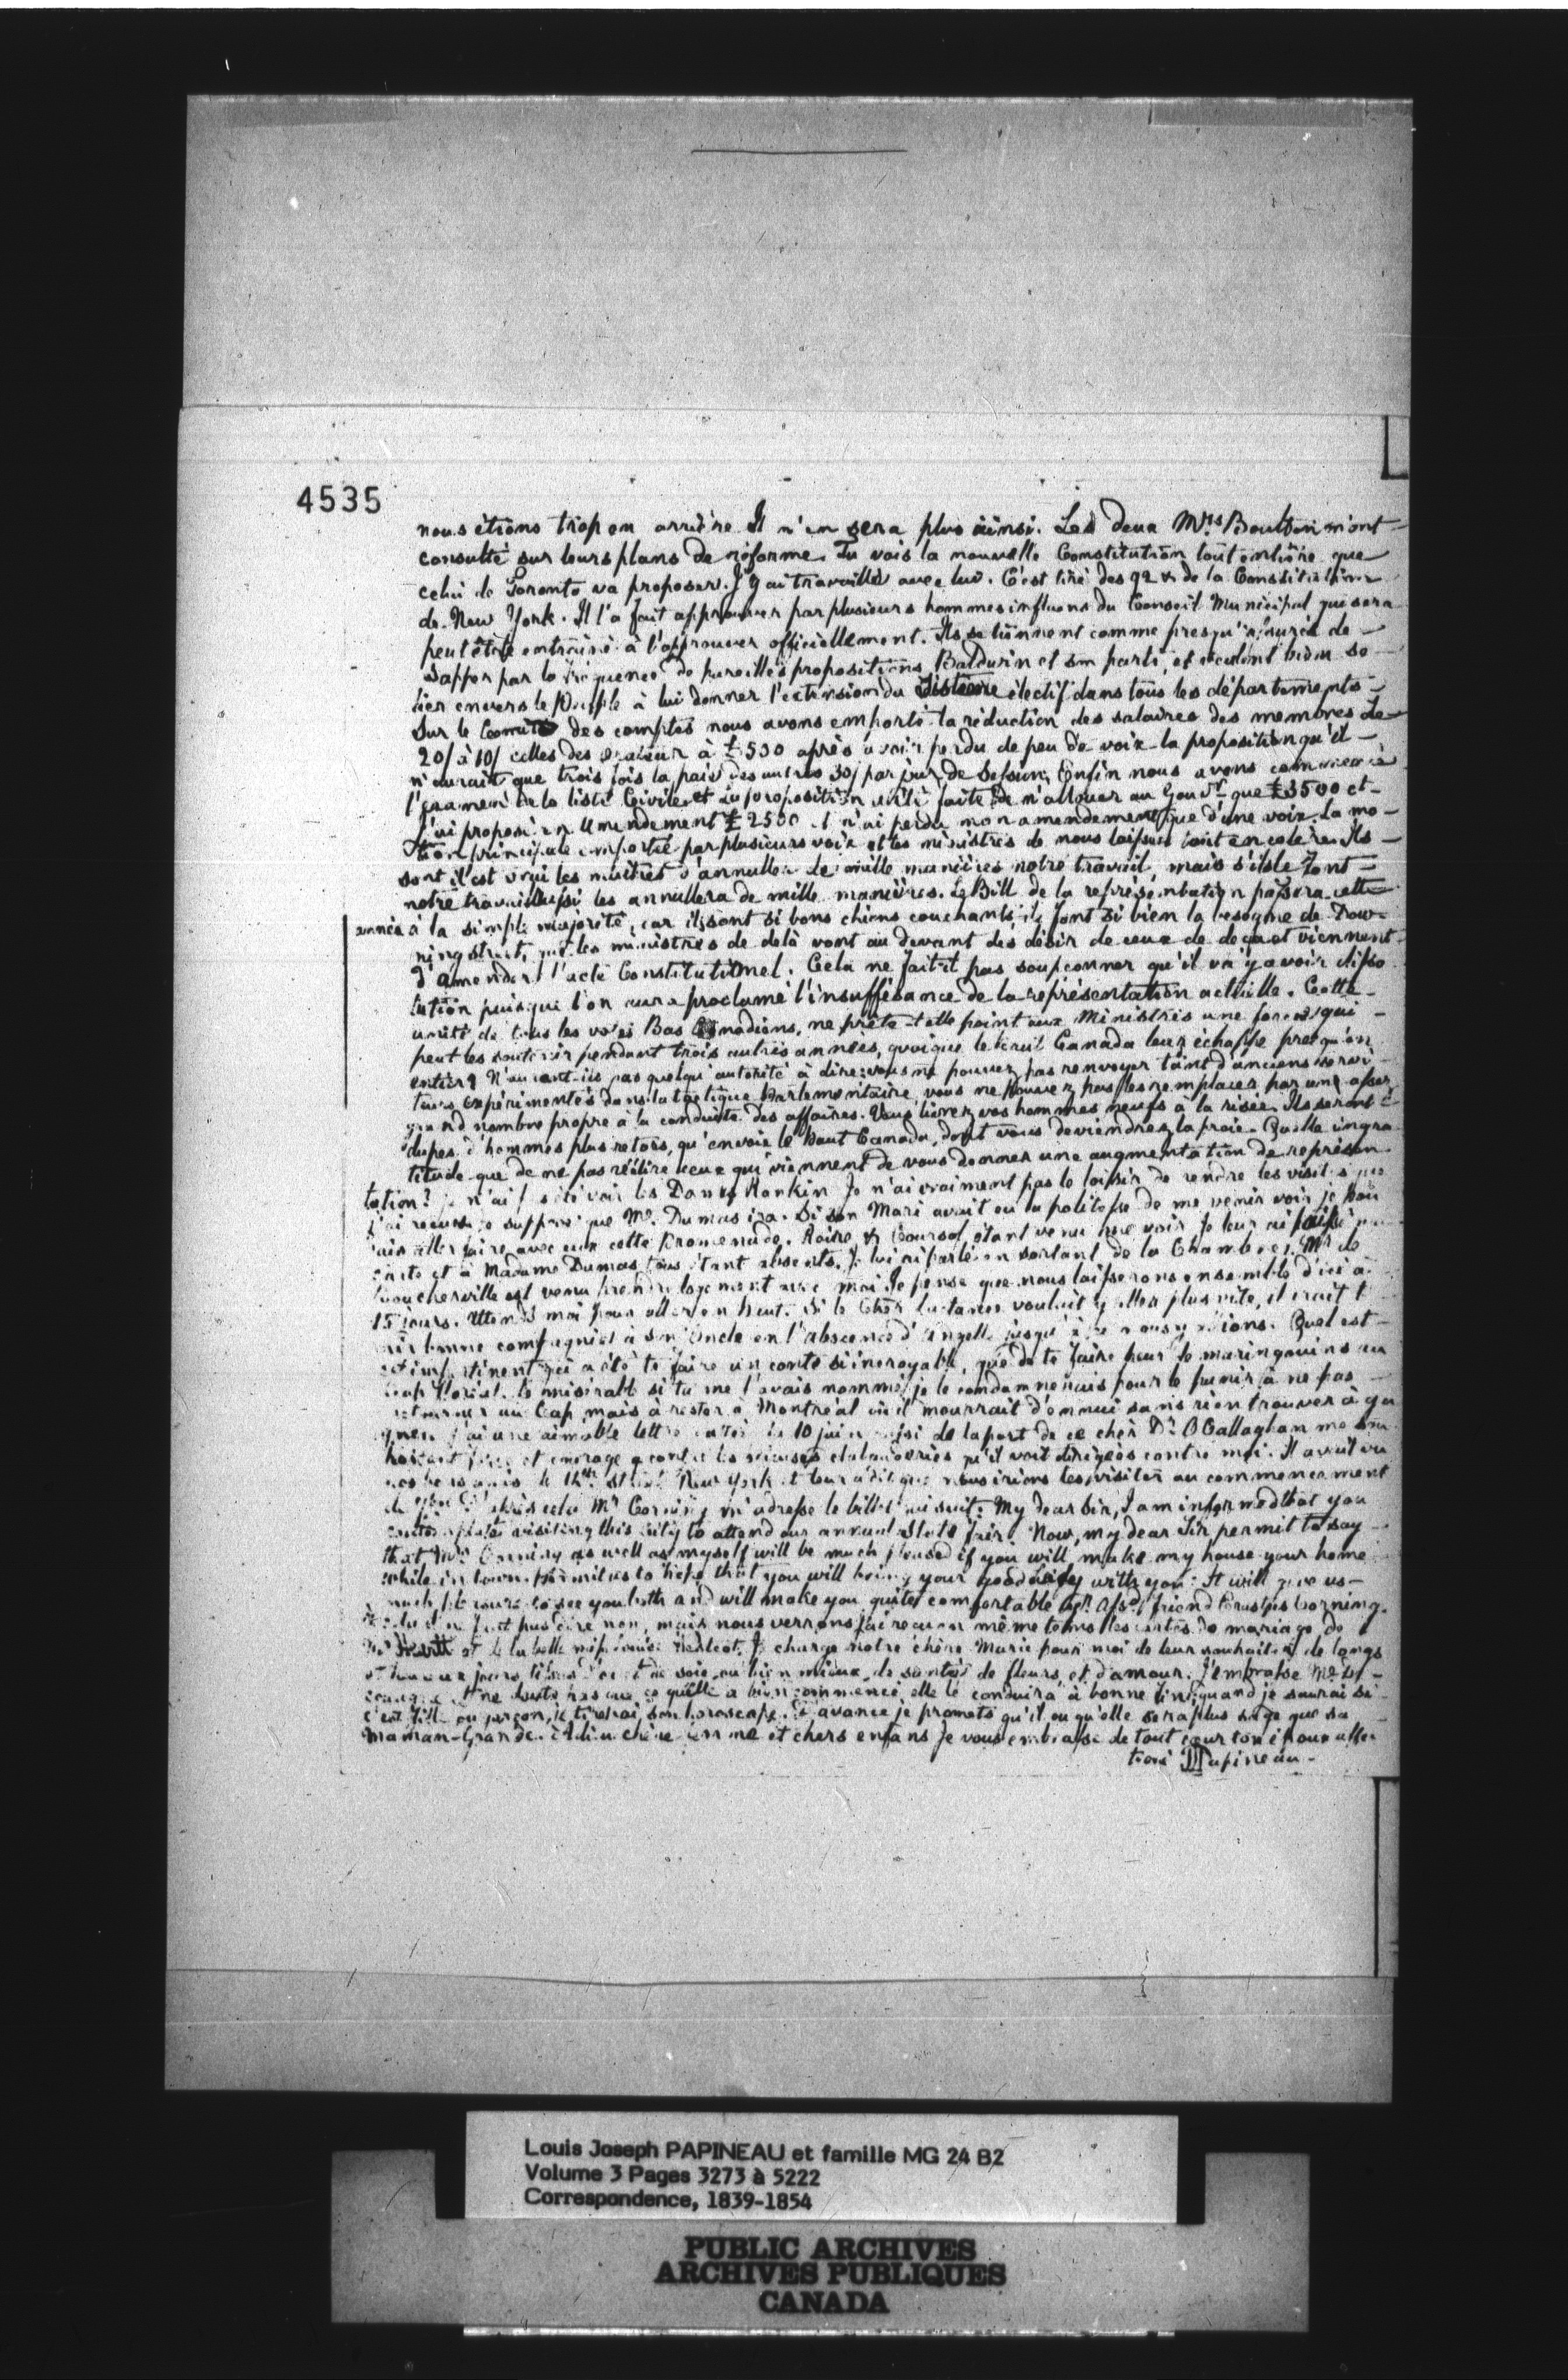 4535
nous étions trop en arrière. Il n'en sera plus ainsi. Les deux Mrs Boulton m'ont
consulté sur leurs plans de réforme. Tu vois la nouvelle Constitution tout entière que
celui de Toronto va proposer. J'y ai travaillé avec lui. C'est tiré des 92 & de la Constitution
de New York. Il l'a fait approuver par plusieurs hommes influens du Conseil Municipal qui sera
peut être entrainé à l'approuver officiellement. Ils se tiennent comme presqu'assurés de
sapper par la fréquence de pareilles propositions Baldwin et son parti, et veulent bien se
lier envers le Peuple à lui donner l'extension du Sistème électif dans tous les départements
Sur le Comité des comptes nous avons emporté la réduction des salaires des membres de
20/ à 10/ celles des orateur à £500 après avoir perdu de peu de voix la proposition qu'il
n'aurait que trois fois la paie des autres 30/ par jour de Session, Enfin nous avons commencé
l'examen de la liste Civile et la proposition a été faite de n'allouer au Gouvr. que £3500 et
j'ai proposé en amendement £2500 et n'ai perdu mon amendement que d'une voix. La mo-
tion principale emportée par plusieurs voix et les ministres de nous laisser tout en colère. Ils
sont il est vrai les maîtres d'annuller de mille manières notre travail, mais s'ils le font
notre travail aussi les annullera de mille manières. Le Bill de la représentation passera cette
année à la simple majorité, car ils sont si bons chiens couchants, ils font si bien la besogne de Dow-
ning street, que les ministres de delà vont au devant des désir de ceux de deça et viennent
d'amender l'acte Constitutionnel. Cela ne fait-il pas soupconner qu'il va y avoir disso
lution puisque l'on aura proclamé l'insuffisance de la représentation actuelle. Cette
unité de tous les votes Bas Canadiens, ne prête-t-elle point aux Ministres une force qui
peut les soutenir pendant trois autres années, quoique le haut Canada leur échappe presqu'en
entier? N'auront-ils pas quelqu'autorité à dire: vous ne pouvez pas renvoyer tant d'anciens servi-
teurs expérimentés dans la tactique Parlementaire, vous ne pouvez pas les remplacer par un assez
grand nombre propre à la conduite des affaires. Vous livrez vos hommes neufs à la risée. Ils seront
dupes d'hommes plus retors, qu'envoie le haut Canada, dont vous deviendrez la proie. Quelle ingra
titude que de ne pas réélire ceux qui viennent de vous donner une augmentation de représen-
tation? je n'ai pas été voir les Dames Rankin Je n'ai vraiment pas le loisir de rendre les visites que
j'ai reçues. Je suppose que Me. Dumas ira. Si son Mari avait eu la politesse de me venir voir je
aller faire avec eux cette promenade. & Coursol étant venu me voir je leur ai laissé
carte et à Madame Dumas tous étant absents. Je lui ai parlé en sortant de la Chambre. Mr de
Boucherville est venu prendre logement avec moi Je pense que nous laisserons ensemble d'ici à
15 jours. Attends moi pour aller en haut. Si le Cher Gustave voulait y aller plus vite, il irait
bonne compagnie à son Oncle en l'absence d'Angelle jusqu'à ce nous y Quel est
impertinent qui a été te faire un conte si incroyable, que de te faire peur de maringouins au
Cap le misérable si tu me l'avais nommé, je le condamnerais pour le punir à ne pas
retourner au Cap mais à rester à Montréal où il mourrait d'ennui sans rien trouver à ga
gner. J'ai une aimable lettre datée du 10 juin aussi de la part de ce cher Dr. O Callaghan me
force et courage contre les injures et clabauderies qu'il voit dirigées contre moi. Il avait vu
nos bons amis New York et leur a dit que nous irions les visiter au commencement
de après cela Mr Corning m'adresse le billet qui suit: My dear Sir, I am informed that you
contemplate visiting this City to attend our annual State Fair. Now, my dear Sir permit to say
that, Mrs Corning as well as myself will be much pleased if you will make my house your home
while in town. Permit us to hope that you will bring your good Lady with you: It will give us
much pleasure to see you both and will make you quite comfortable Yr. afft. friend Erastus Corning.
pas dire non, mais nous verrons j'ai reçu en même tems les cartes de mariage de
et de la belle Je charge notre chère Marie pour moi de leur souhaiter de longs
et heureux jours et de soie, ou bien mieux de santé de fleurs, et d'amour. J'embrasse Me
ne doute pas que ce qu'elle a bien commencé, elle le conduira à bonne fin, quand je saurai si
c'est fille ou garçon, je tirerai son horoscope. D'avance je promets qu'il ou qu'elle sera plus sage que sa
Maman-Grande. Adieu chère femme et chers enfans Je vous embrasse de tout cœur ton époux affec
tioné LJ Papineau
Louis Joseph PAPINEAU et famille MG 24 B2
Volume 3 Pages 3273 à 5222
Correspondence, 1839-1854
PUBLIC ARCHIVES
ARCHIVES PUBLIQUES
CANADA